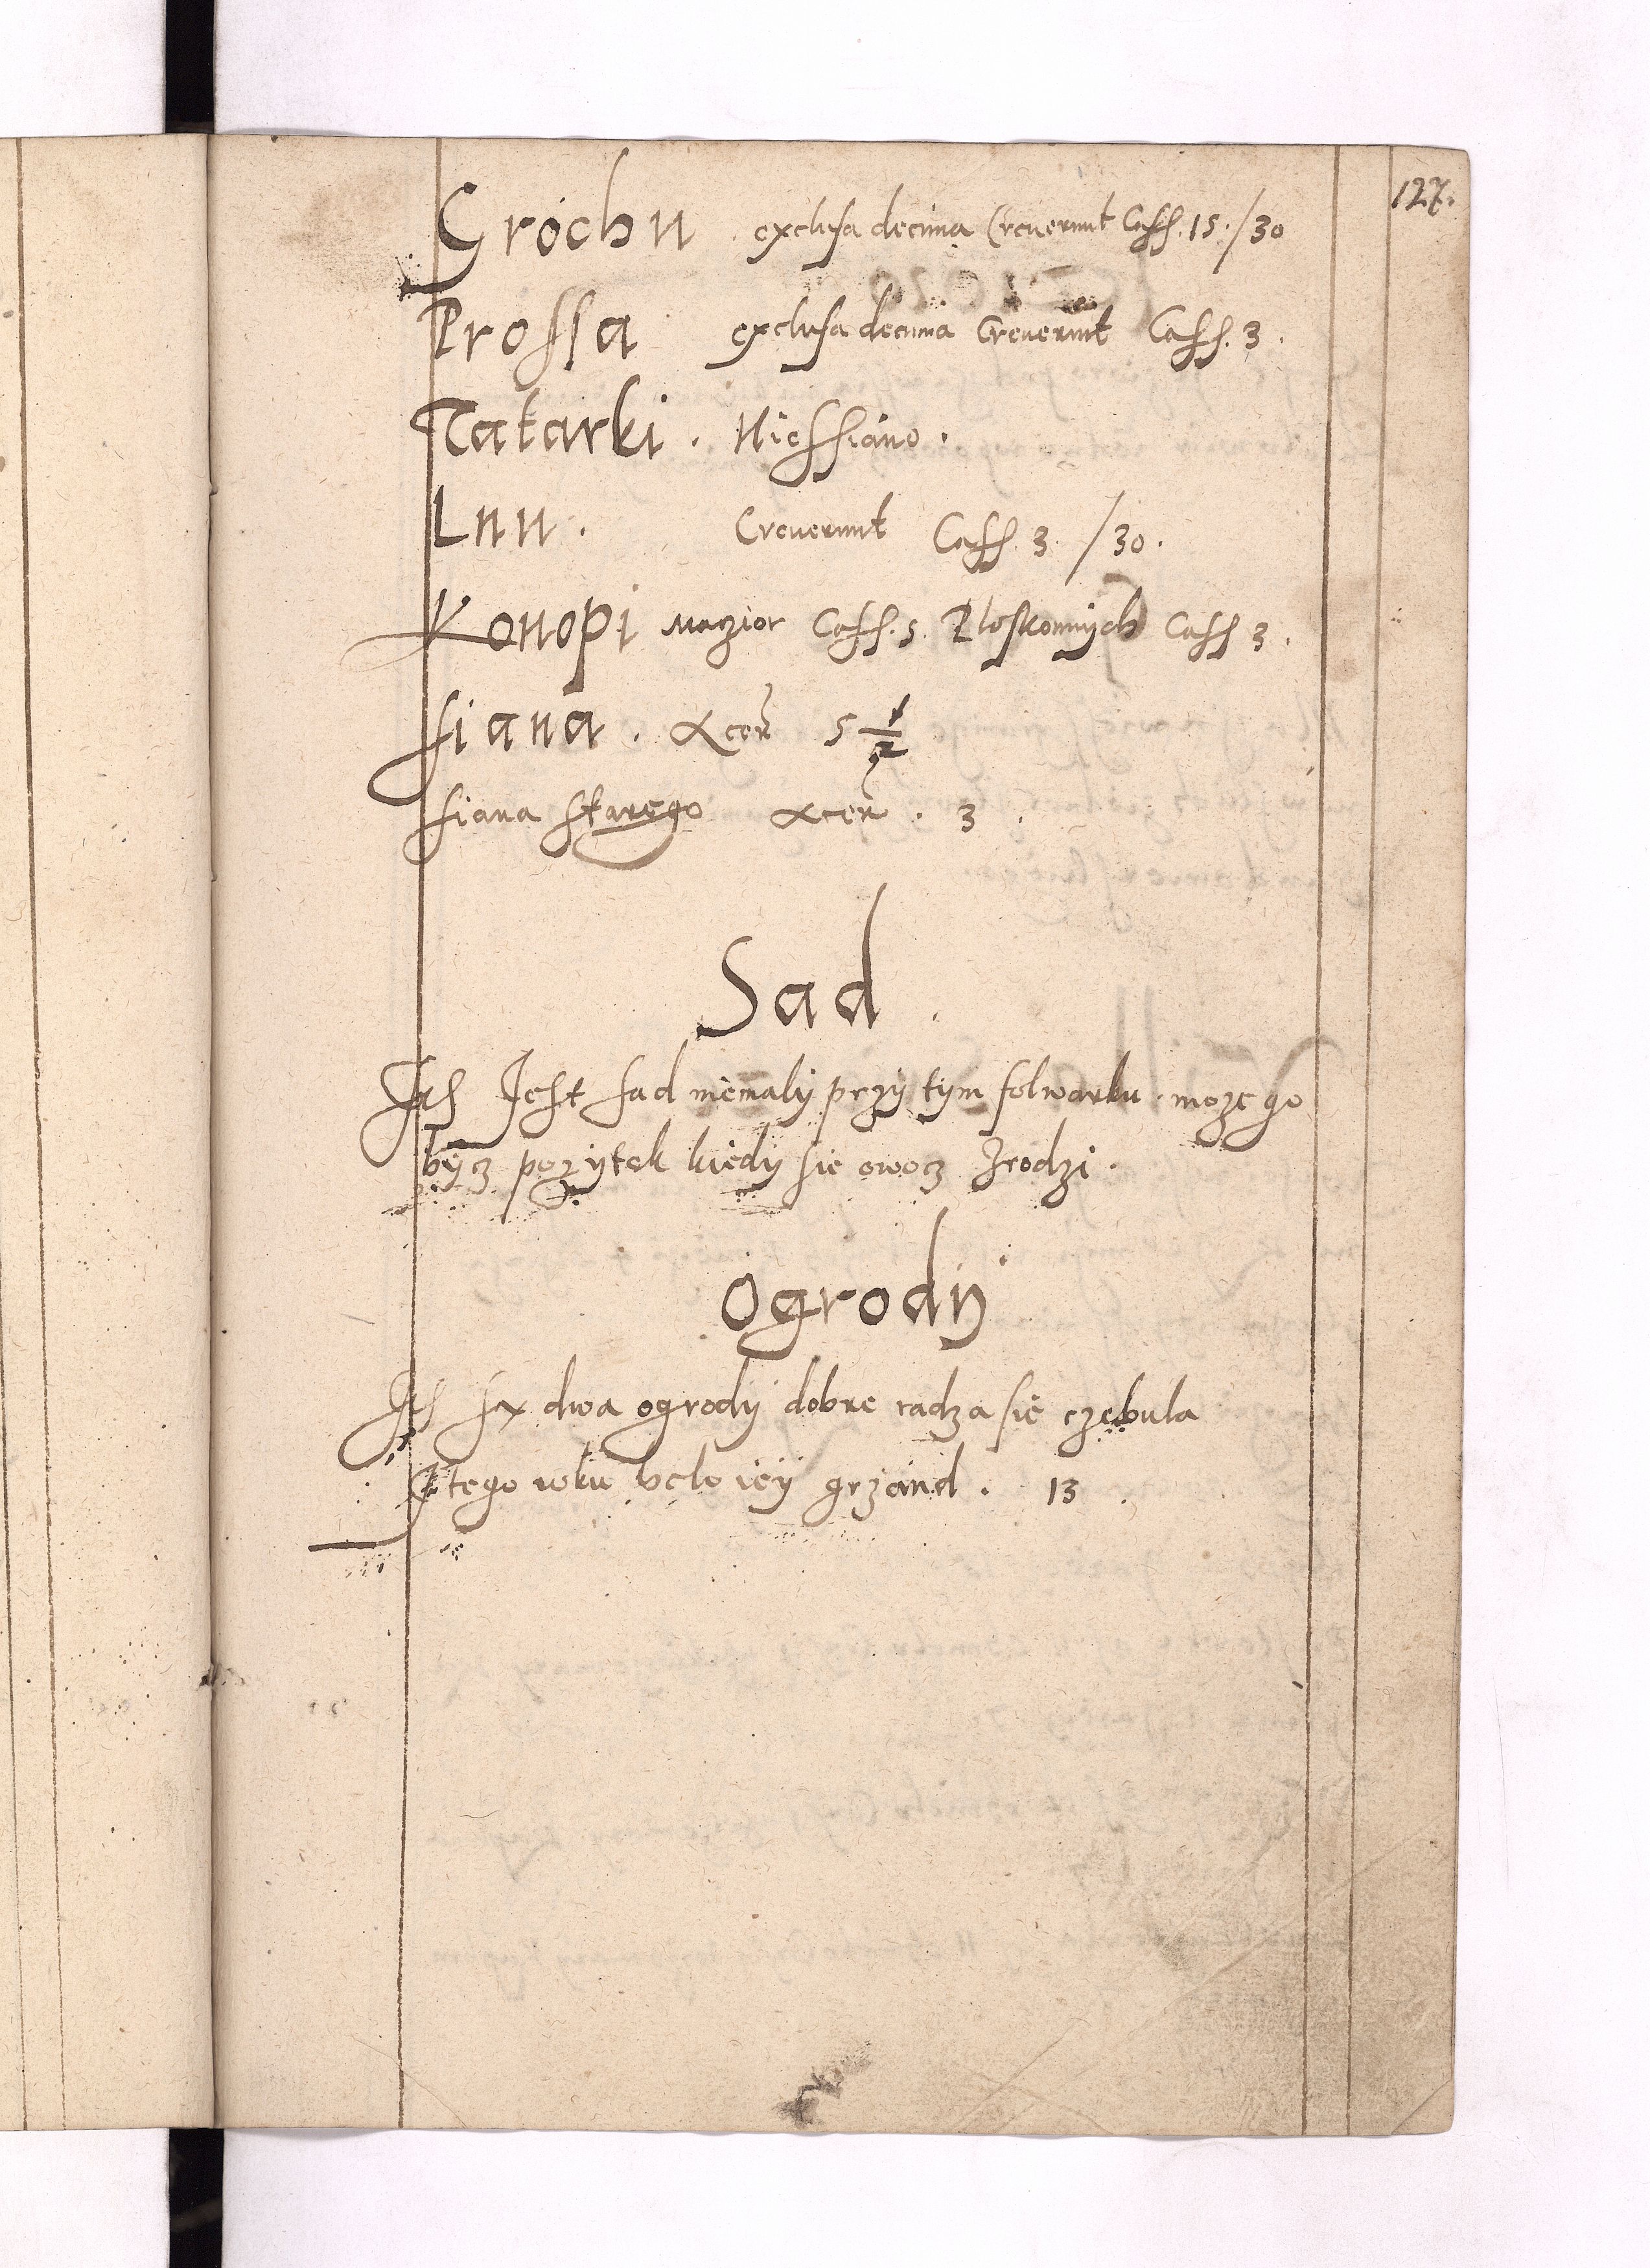 127.
Grochu exclusa decima Creuerunt Cass. 15. /30
Prossa exclusa decima Creuerunt Cass. 3.
Tatarki. Niessiano.
Lnu. Creuerunt Cass. 3. /30.
Konopi Maczior Cass. 5. Ploskonnÿch Cass 3.
Siana. Acer 5 1/2
Siana Starego Acer. 3.
Sad.
Jest sad niemalÿ przÿ tÿm folwarku. moze go
bÿcz pozÿtek kiedÿ sie owocz zrodzi.
Ogrodÿ
dwa ogrodÿ dobre radza sie czebula
tego roku belo ieÿ grzand. 13.